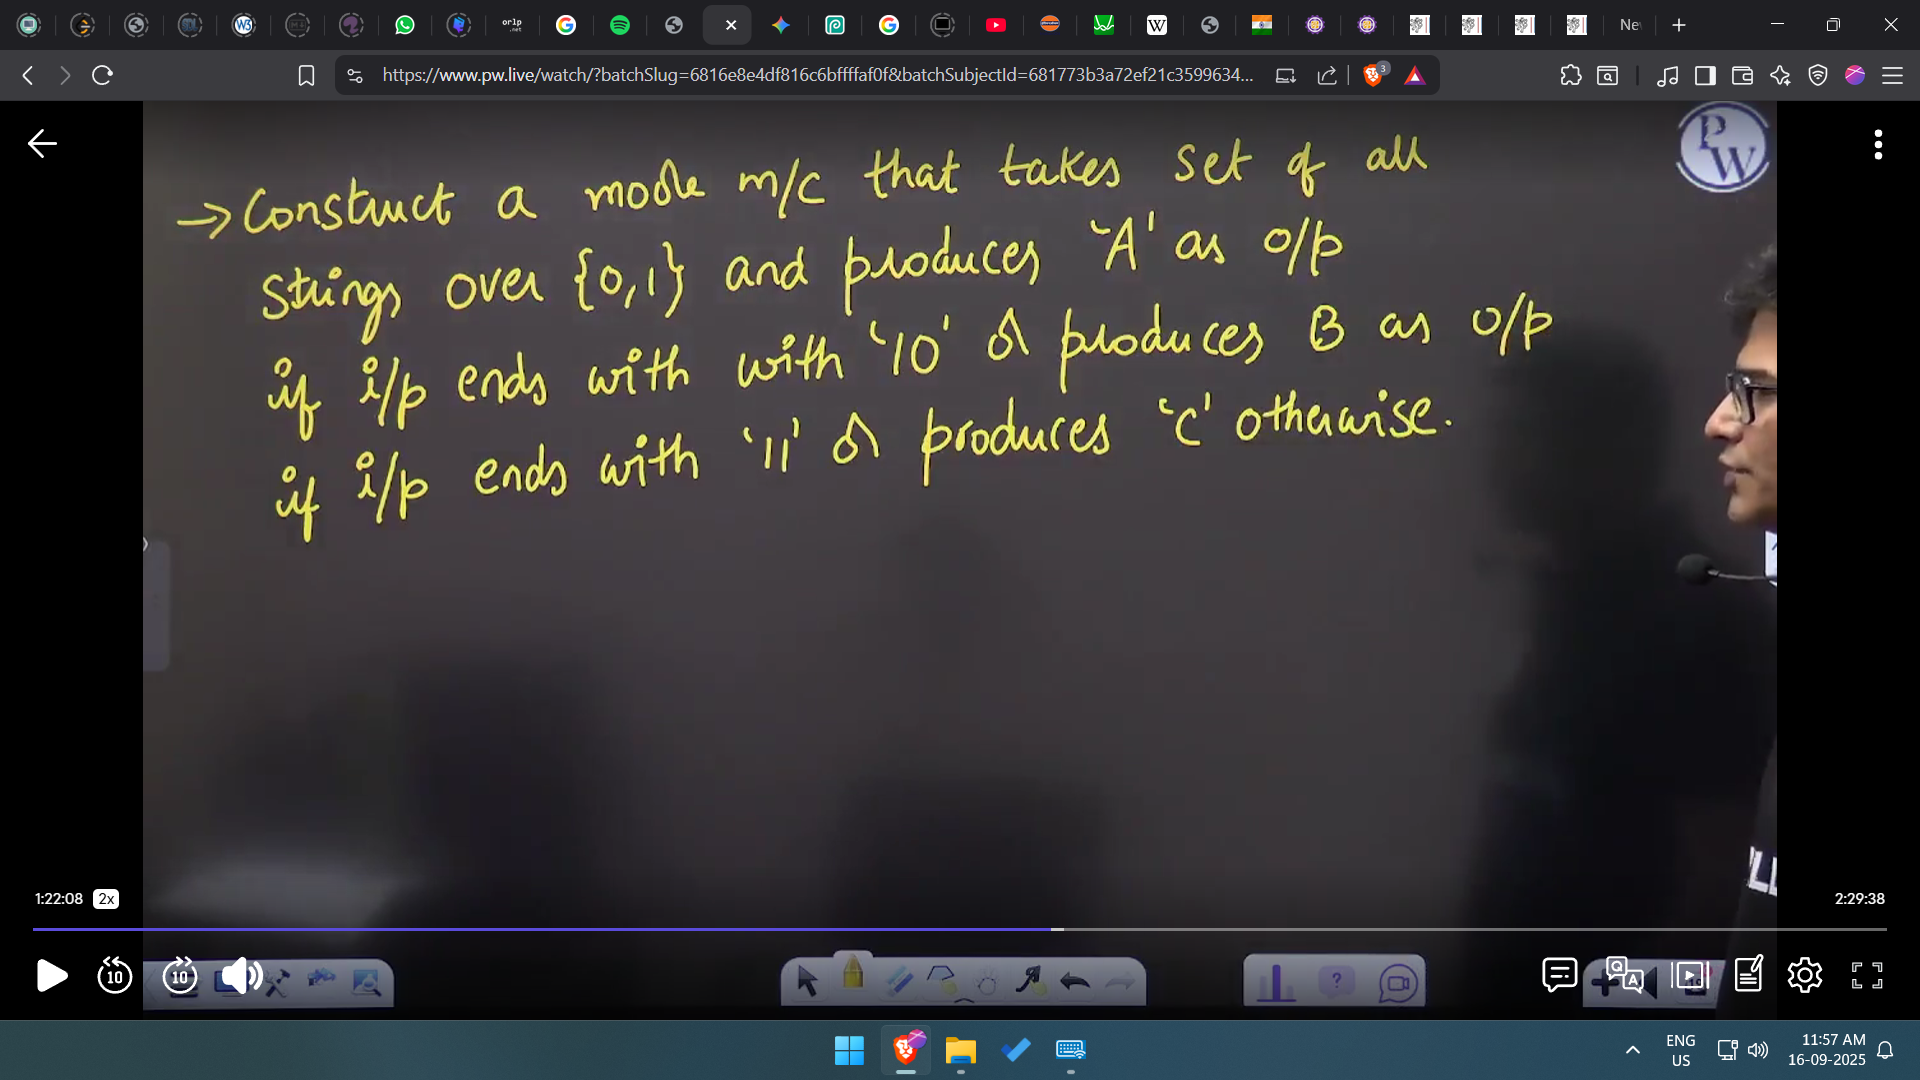 orlp
.net
Ne
https://www.pw.live/watch/?batchSlug=6816e8e4df816c6bffffaf0f&batchSubjectId=681773b3a72ef21c3599634...
3
PW
→ Construct a moore m/c that takes set of all
strings over {0,1} and produces 'A' as o/p
if i/p ends with with '10' or produces B as o/p
if i/p ends with '11' or produces 'C' otherwise.
1:22:08 2x
2:29:38
10 10
ENG
US
11:57 AM
16-09-2025